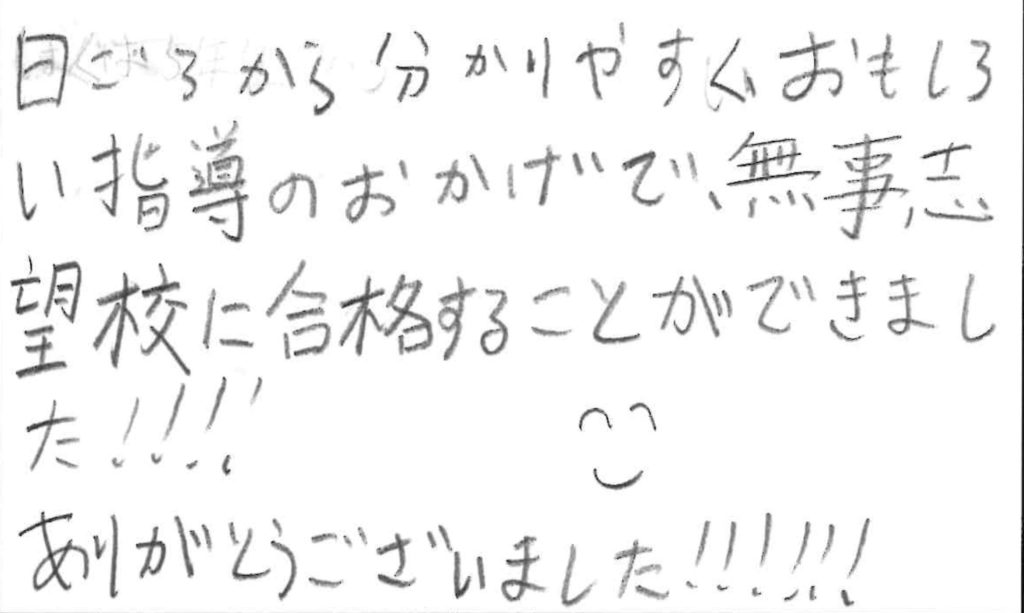 日ごろから分かりやすく、おもしろ
い指導のおかげで、無事、志
望校に合格することができまし
た!!!!
ありがとうございました!!!!!!